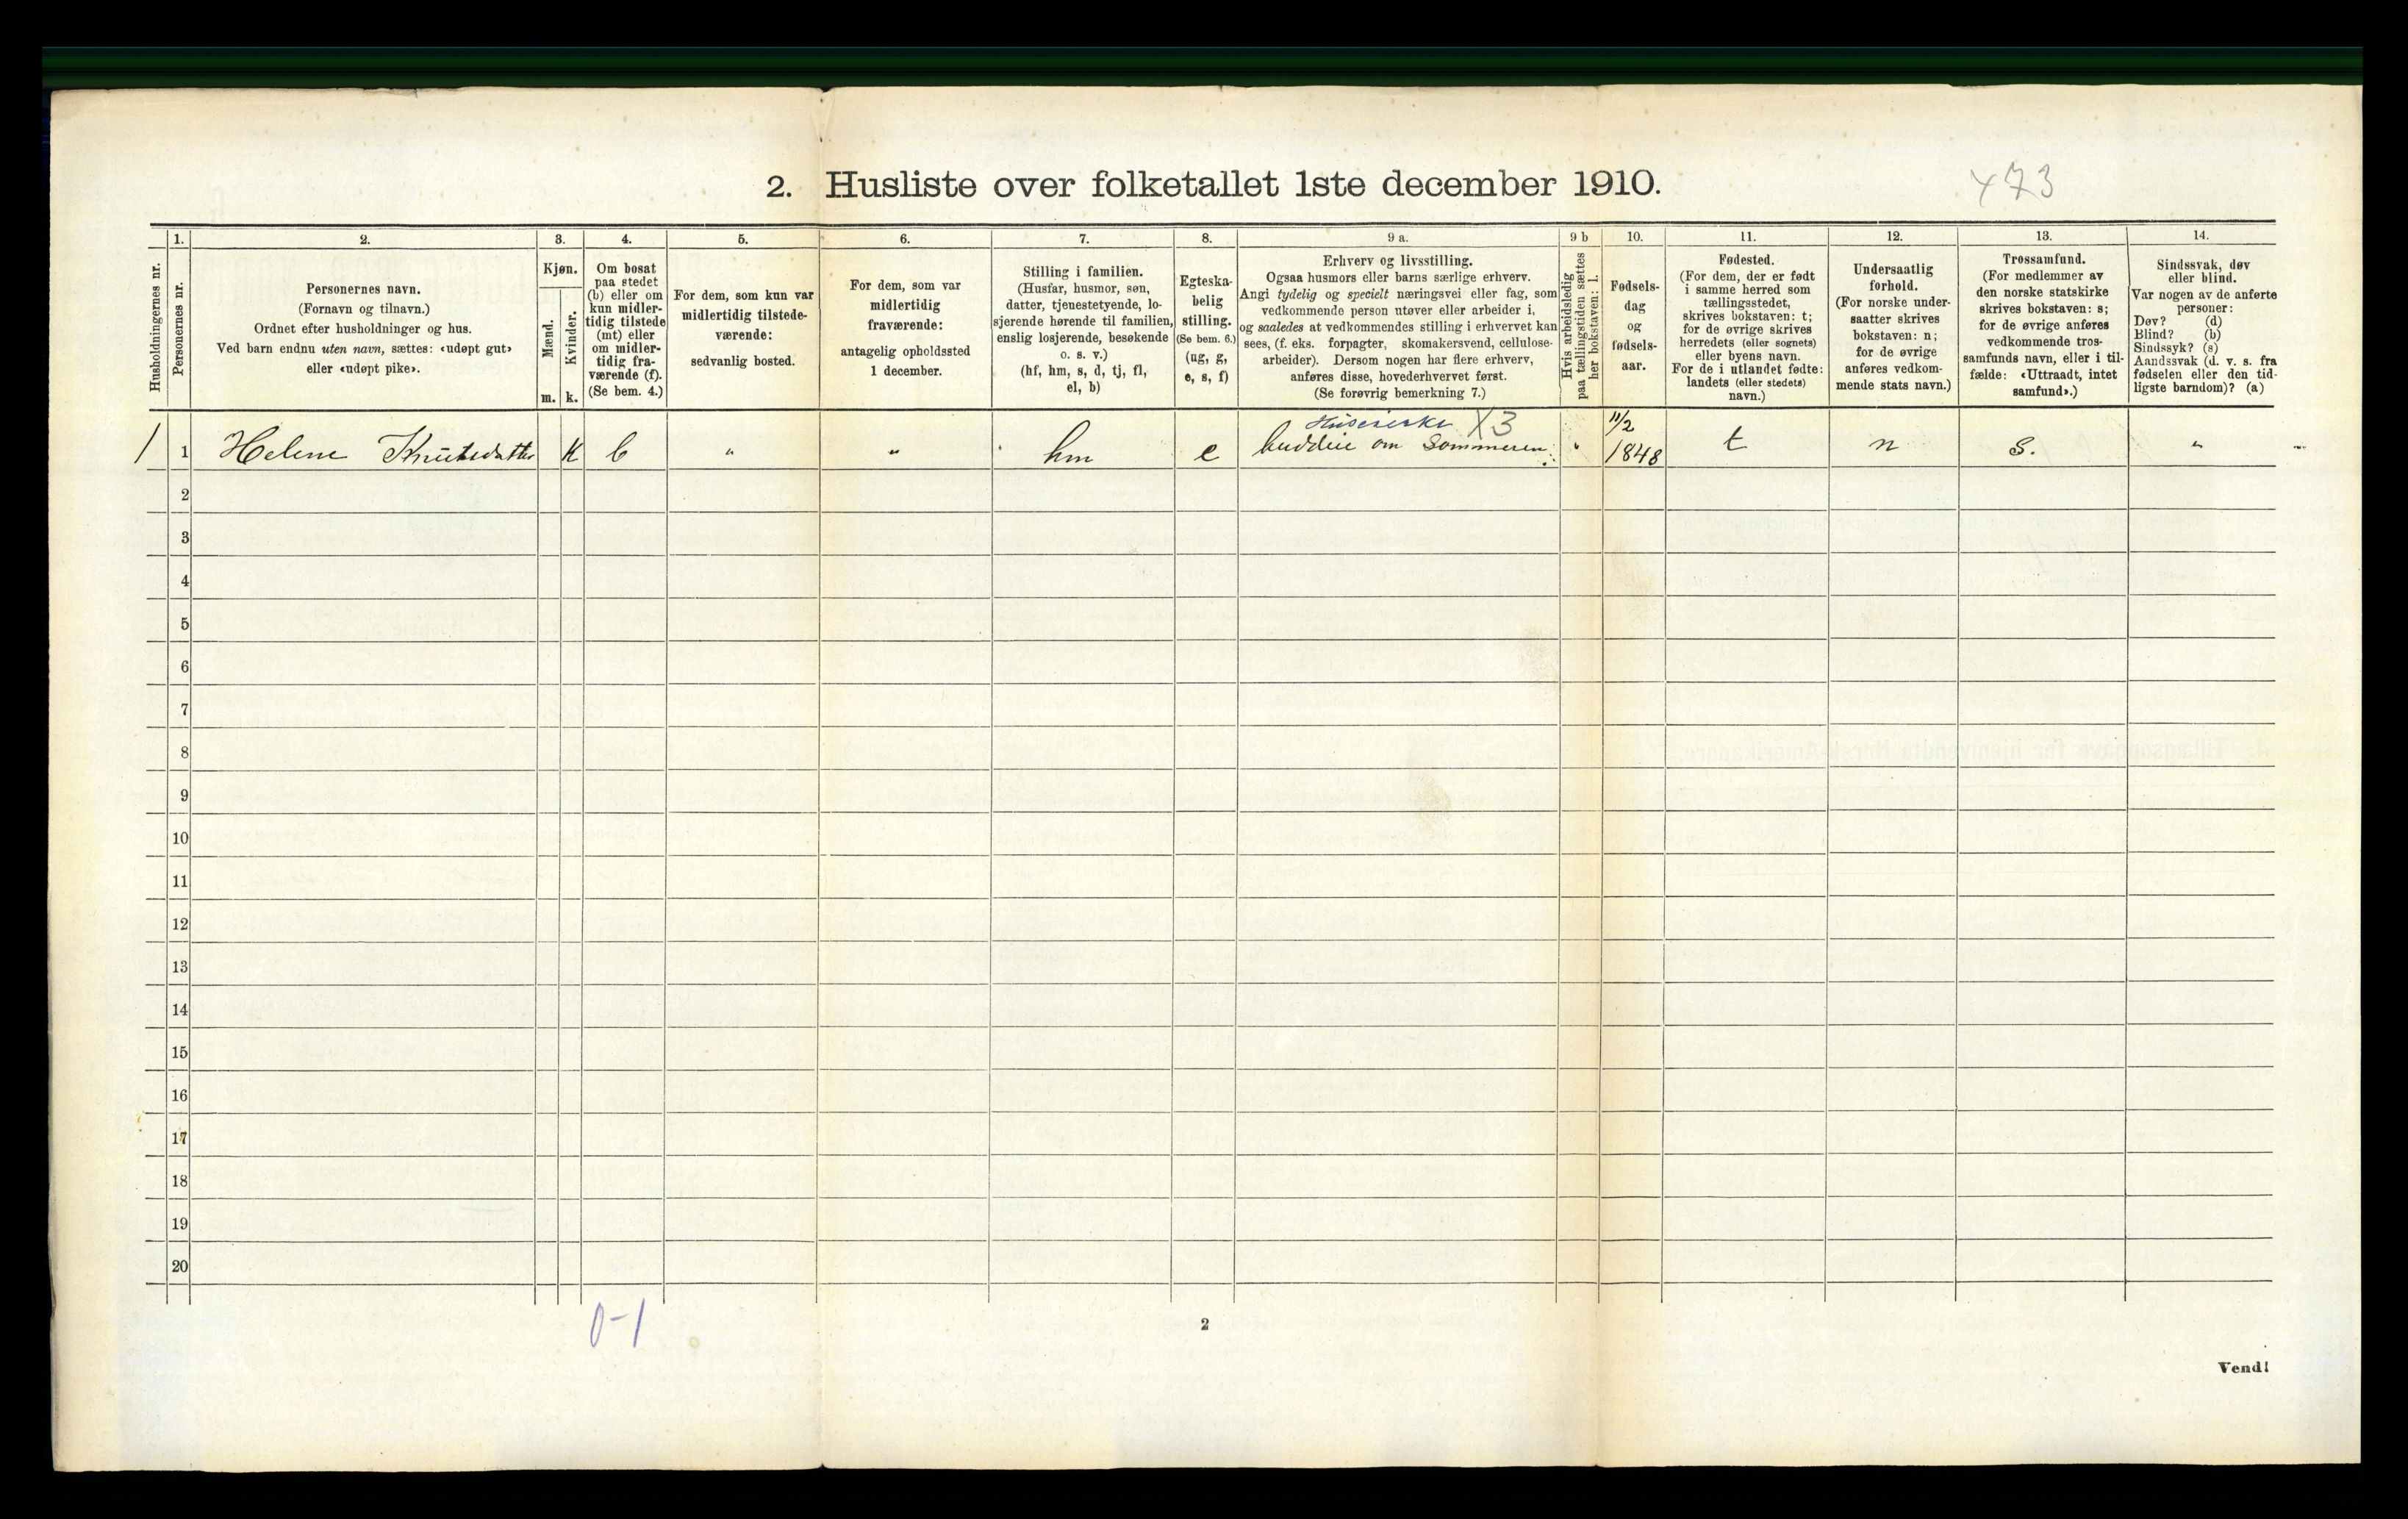 2. Husliste over folketallet 1ste december 1910.
473
Husholdningernes nr.
1.
Personernes nr.
2.
Personernes navn.
(Fornavn og tilnavn.)
Ordnet efter husholdninger og hus.
Ved barn endnu uten navn, sættes: «udøpt gut»
eller «udøpt pike».
3.
Kjøn.
Mænd.
Kvinder.
m.
k.
4.
Om bosat
paa stedet
(b) eller om
kun midler-
tidig tilstede
(mt) eller
om midler-
tidig fra-
værende (f).
(Se bem. 4.)
5.
For dem, som kun var
midlertidig tilstede-
værende:
sedvanlig bosted.
6.
For dem, som var
midlertidig
fraværende:
antagelig opholdssted
1 december.
7.
Stilling i familien.
(Husfar, husmor, søn,
datter, tjenestetyende, lo-
sjerende hørende til familien,
enslig losjerende, besøkende
o. s. v.)
(hf, hm, s, d, tj, fl,
el, b)
8.
Egteska-
belig
stilling.
(Se bem. 6.)
(ug, g,
e, s, f)
9 a.
Erhverv og livsstilling.
Ogsaa husmors eller barns særlige erhverv.
Angi tydelig og specielt næringsvei eller fag, som
vedkommende person utøver eller arbeider i,
og saaledes at vedkommendes stilling i erhvervet kan
sees, (f. eks. forpagter, skomakersvend, cellulose-
arbeider). Dersom nogen har flere erhverv,
anføres disse, hovederhvervet først.
(Se forøvrig bemerkning 7.)
9 b
Hvis arbeidsledig
paa tællingstiden sættes
her bokstaven: l.
10.
Fødsels-
dag
og
fødsels-
aar.
11.
Fødested.
(For dem, der er født
i samme herred som
tællingsstedet,
skrives bokstaven: t;
for de øvrige skrives
herredets (eller sognets)
eller byens navn.
For de i utlandet fødte:
landets (eller stedets)
navn.)
12.
Undersaatlig
forhold.
(For norske under-
saatter skrives
bokstaven: n;
for de øvrige
anføres vedkom-
mende stats navn.)
13.
Trossamfund.
(For medlemmer av
den norske statskirke
skrives bokstaven: s;
for de øvrige anføres
vedkommende tros-
samfunds navn, eller i til-
fælde: «Uttraadt, intet
samfund».)
14.
Sindssvak, døv
eller blind.
Var nogen av de anførte
personer:
Døv? (d)
Blind? (b)
Sindssyk? (s)
Aandssvak (d. v. s. fra
fødselen eller den tid-
ligste barndom)? (a)
X3
1 1 Helene Knutsdatter K b " " hm e buddeie om Sommeren " 11/2 1848 t n s. "
2
3
4
5
6
7
8
9
10
11
12
13
14
15
16
17
18
19
20
0-1
2
Vend!